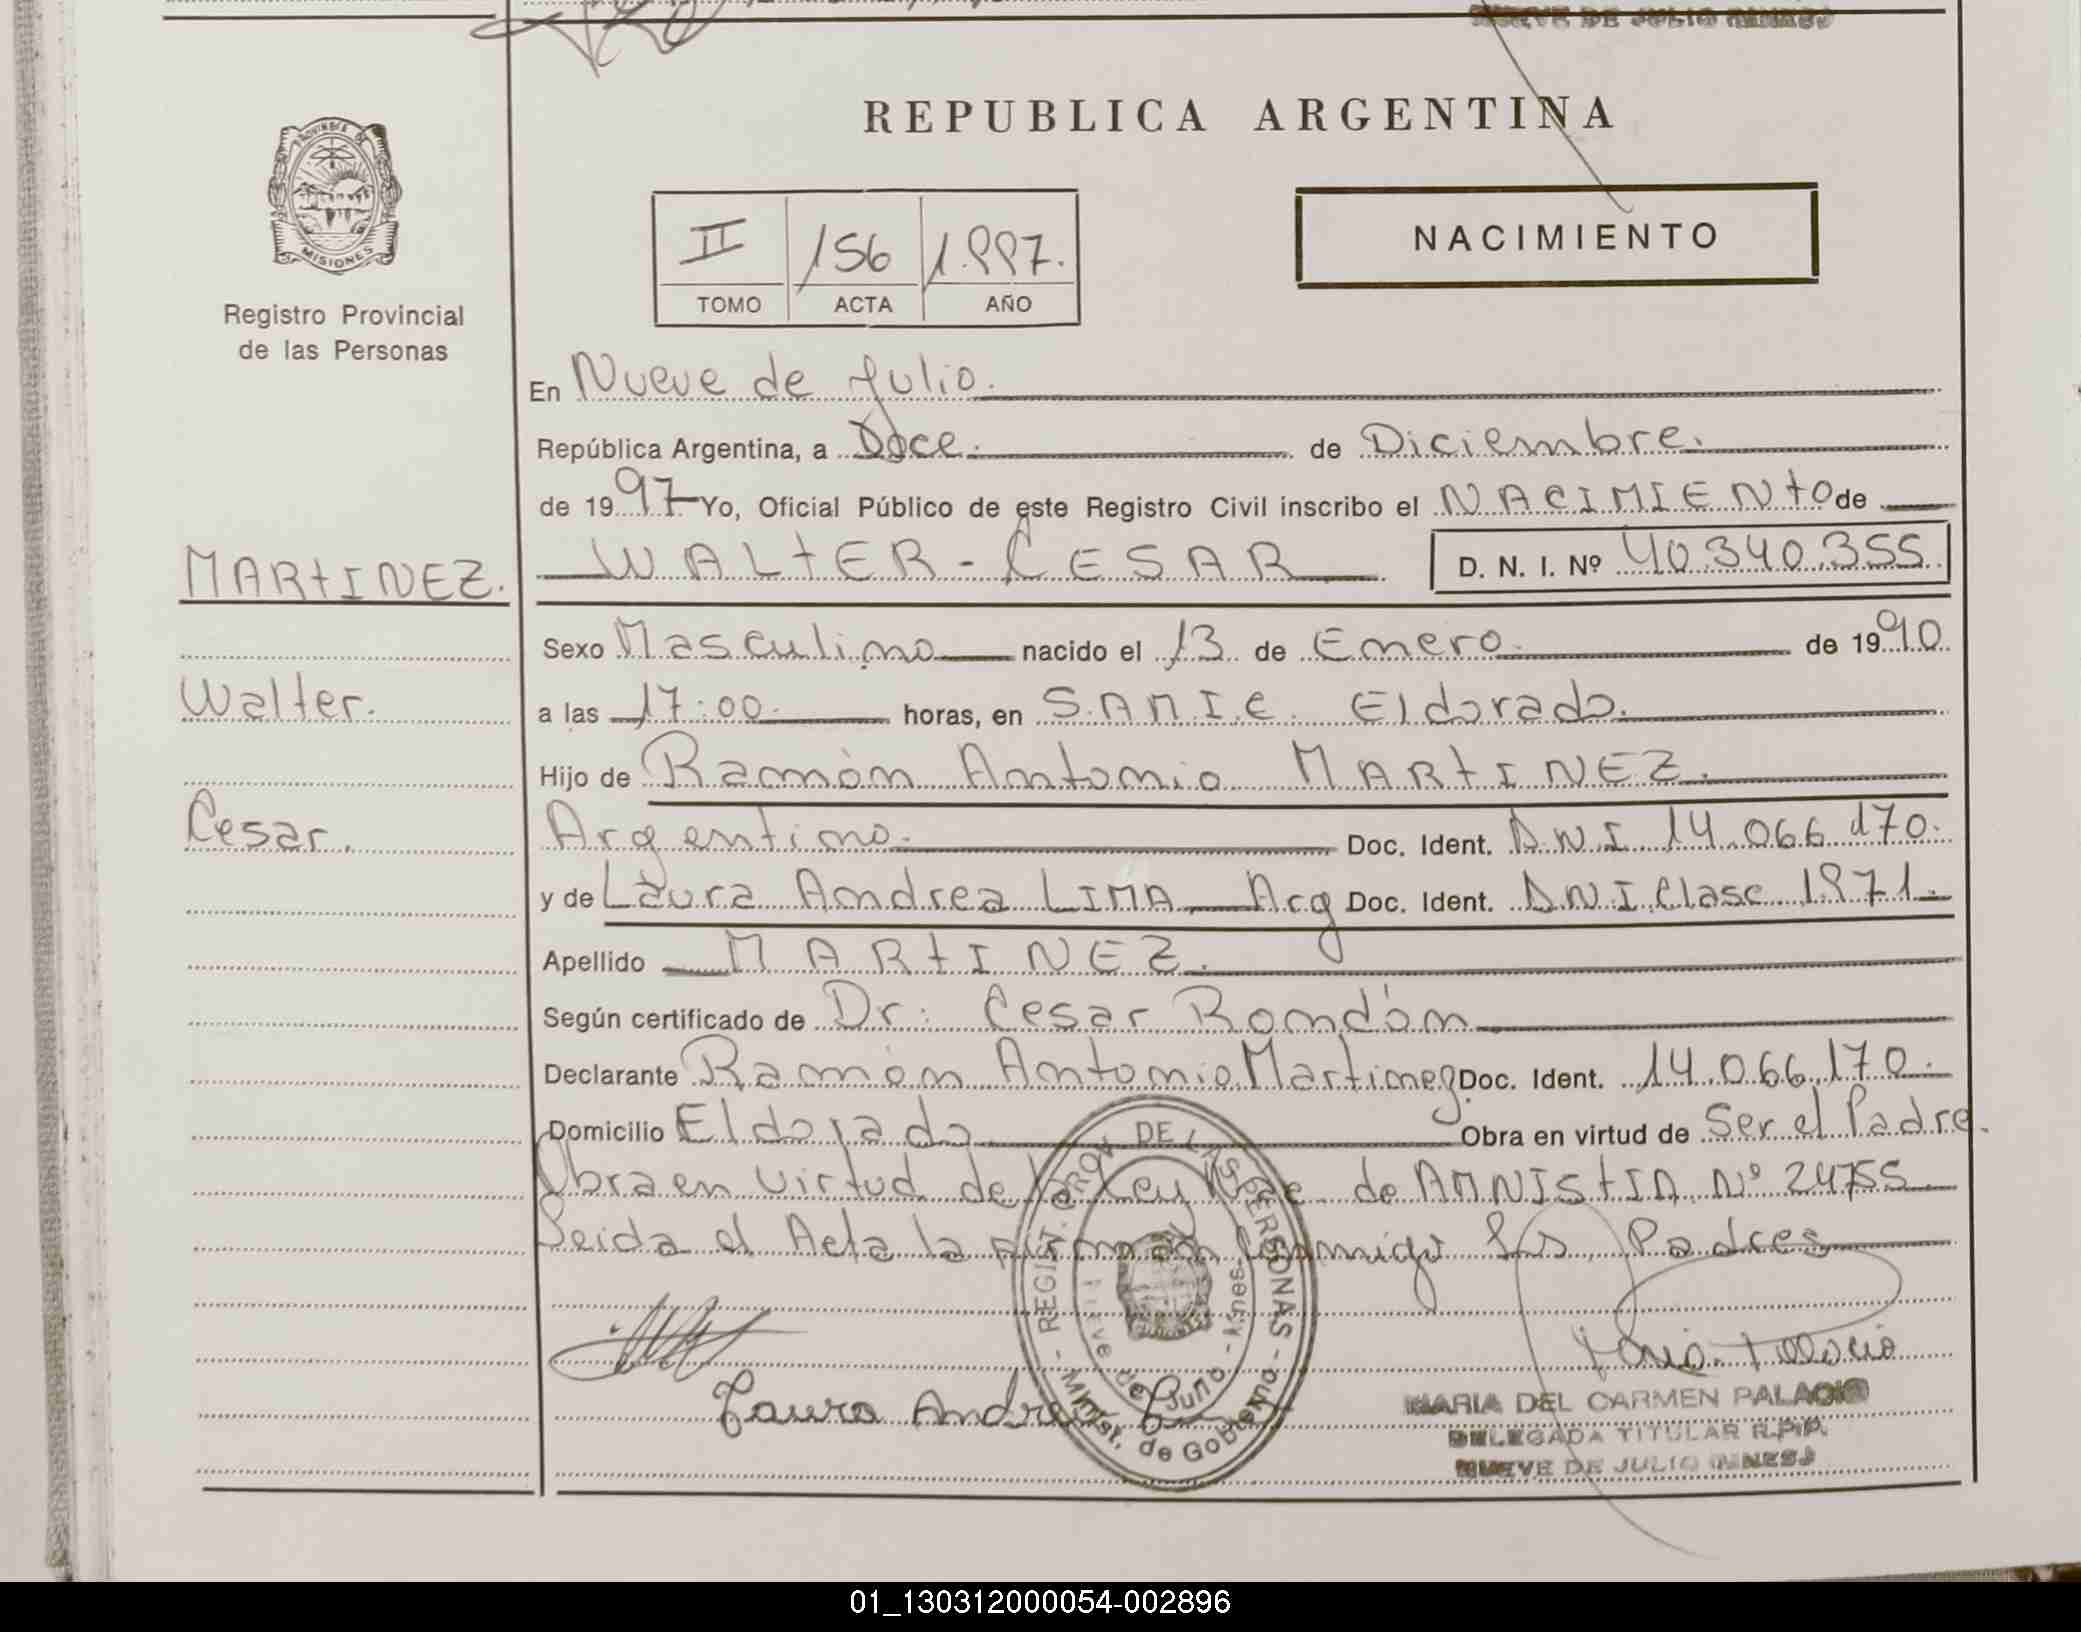 NUEVE DE JULIO (MNES)
PROVINCIA DE
MISIONES
Registro Provincial
de las Personas
REPUBLICA ARGENTINA
NACIMIENTO
II 156 1.997.
TOMO ACTA AÑO
En Nueve de Julio.
República Argentina, a Doce. de Diciembre.
de 1997 Yo, Oficial Público de este Registro Civil inscribo el NACIMIENtO de
MARtINEZ. WALtER - CESAR D. N. I. Nº 40.340.355
Sexo Masculino nacido el 13 de Enero. de 1990
Walter. a las 17:00 horas, en S.A.M.I.C. Eldorado.
Hijo de Ramón Antonio MARtINEZ.
Cesar. Argentino. Doc. Ident. D.N.I 14.066.170.
y de Laura Andrea LIMA Arg Doc. Ident. D.N.I. Clase 1971.
Apellido MARtINEZ.
Según certificado de Dr: Cesar Rondón
Declarante Ramón Antonio Martinez Doc. Ident. 14.066.170.
Domicilio Eldorado Obra en virtud de Ser el Padre.
Obra en virtud de la Ley de AMNIStIA Nº 24755
Leida el Acta la firman conmigo los Padres
REGIST. PROV. DE LAS PERSONAS - Minist. de Gobierno -
Nueve de Julio - Mnes.
Laura Andrea
MARIA DEL CARMEN PALACIO
DELEGADA TITULAR R.P.P.
NUEVE DE JULIO (MNES)
01_130312000054-002896